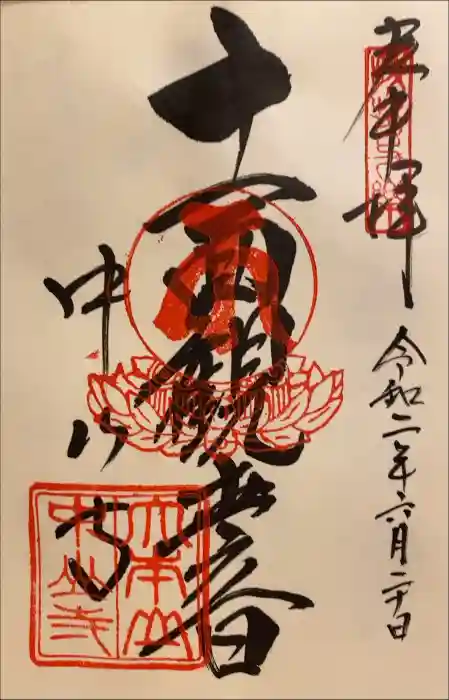 奉拝
令和二年六月二十日
十一面観世音
中山寺
大本山
中山寺